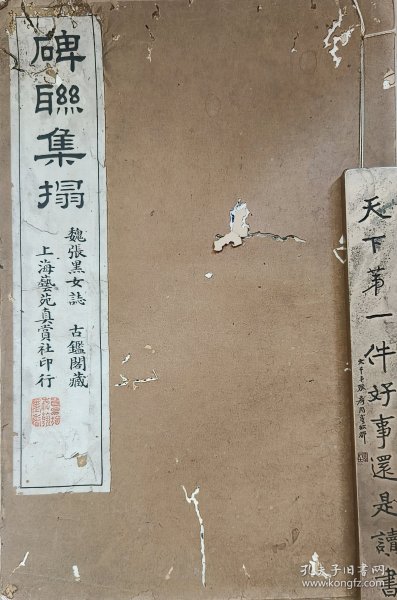 碑聯集搨
魏張黑女誌 古鑑閣藏
上海藝苑真賞社印行
天下第一件好事還是讀書
孔夫子旧书网
www.kongfz.com